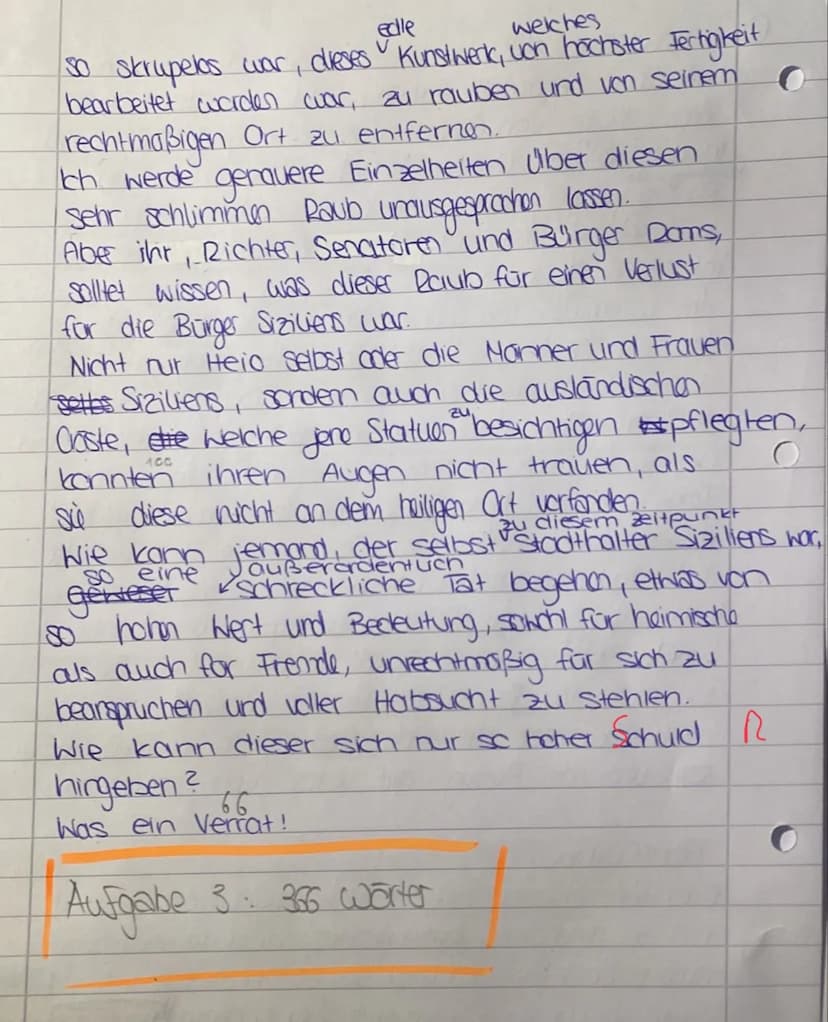 edle welches
so skrupelos war, dieses Kunstwerk, von höchster Fertigkeit
bearbeitet worden war, zu rauben und von seinem
rechtmäßigen Ort zu entfernen.
Ich werde genauere Einzelheiten über diesen
sehr schlimmen Raub unausgesprochen lassen.
Aber ihr, Richter, Senatoren und Bürger Roms,
solltet wissen, was dieser Raub für einen Verlust
für die Bürger Siziliens war.
Nicht nur Heio selbst oder die Männer und Frauen
Siziliens, sondern auch die ausländischen
zu
Gäste, die welche jene Statuen besichtigen pflegten,
100
konnten ihren Augen nicht trauen, als
sie diese nicht an dem heiligen Ort vorfanden.
zu diesem Zeitpunkt
Wie kann jemand, der selbst Stadthalter Siziliens war,
so eine außerordentlich
schreckliche Tat begehen, etwas von
so hohm Wert und Bedeutung, sowohl für heimische
als auch für Fremde, unrechtmäßig für sich zu
beanspruchen und voller Habsucht zu stehlen.
Wie kann dieser sich nur so hoher Schuld R
hingeben?
66
Was ein Verrat!
Aufgabe 3: 366 Wörter